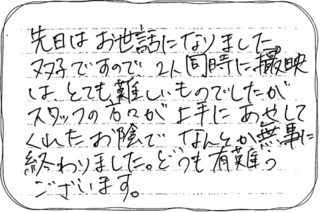 先日はお世話になりました
双子ですので2人同時に撮映
はとても難しいものでしたが
スタッフの方々が上手にあせして
くれたお陰でなんとか無事に
終わりました。どうも有難う
ございます。